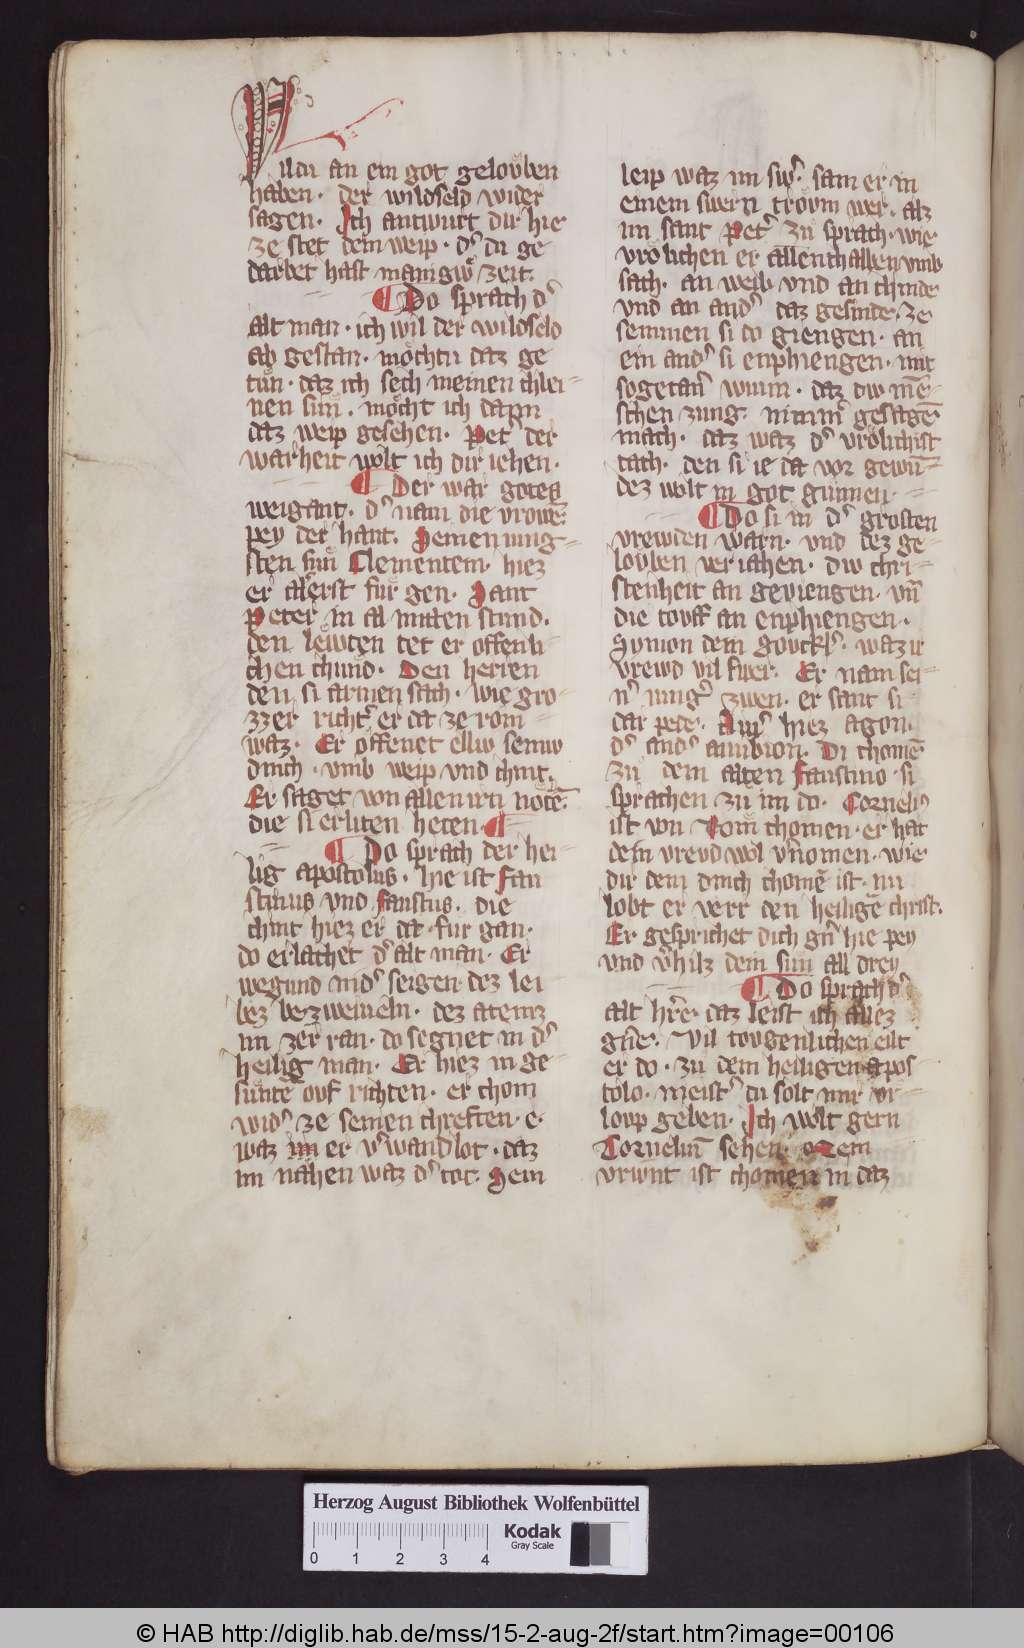 Wildu an ein got geloͮben
haben. der wildseld wider
sagen. Ich antwurt dir hie
ze stet dein weip. dͥ du ge
darbet hast manigw̓ zeit.
¶ Do sprach dͥ
alt man. ich wil der wildseld
ab gestan. moͤcht daz ge
tuͦn. daz ich sech meinen chlei-
nen sun. moͤcht ich dann
daz weip gesehen. Petͥ der
warheit woͤlt ich dir iehen.
¶ Der war gotes
weigant. dͥ nam die vrowē
pey der hant. Seinen iung-
sten sun Clementem. hiez
er alerst fuͤr gen. Sant
Peter in al mitten stund.
den leẘten tet er offenli
chen chund. Den herren
den si armen sach. wie gro-
zzer richtͥ er da ze rom
waz. Er offenet elliv seiniv
dinch. vmb weip vnd chint.
Er saget von allen irn notē
die si erliten heten. ¶
¶ Do sprach der hei-
lig apostolus. hie ist Fau
stinus vnd Faustus. die
chint hiez er da fur gan.
do erlachet dͥ alt man. Er
wegund nidͥ seigen. dez lei
bez verzweiveln. dez atemz
im zer ran. do segnet in dͥ
heilig man. Er hiez in ge
suntē ouf richten. er chom
widͥ ze seinen chreften. e.
waz im er vͥwandlot. daz
im nahen waz dͥ tot. Sein
leip waz im swͥ. sam er in
einem swern troͮm wer. alz
im sant Petͥ zu sprach. wie
vroͤlichen er allenthalben vmb
sach. an weib vnd an chinde
vnd an andͥ daz gesinde. ze
semmen si do giengen. an
ein andͥ si enphiengen. mit
sogetanͥ wunn. daz diw mē-
schen zung. nimmͥ gesagē
mach. daz waz dͥ vroͤlichist
tach. den si ie da vor gewū-
dez wolt in got gunnen.
¶ Do si in dͥ groͤsten
vrewden warn. vnd dez ge-
loͮben veriahen. diw chri-
stenheit an geviengen. vn̄
die touff an enphiengen.
Symon dem goͮcklͥ. waz ir
vrewd vil swer. Er nam sei-
nͥ iungͥ zwen. er sant si
dar pede. Ainͥ hiez agon.
dͥ andͥ ambion. Di chomē
zu dem alten Faustino. si
sprachen zu im do. Corneliͥ
ist von Rom chomen. er hat
dein vreud wol vͥnomen. wie
dir dein dinch chomē ist. nu
lobt er verr den heiligē christ.
Er gesprichet dich gͥn hie pey
vnd vͥhilz dem sun all drey
¶ Do sprach dͥ
alt hͥre. daz leist ich allez
gͥne. Vil tovgenlichen eilt
er do. zu dem heiligen apos
tolo. meistͥ du solt mir vr-
loup geben. Ich wolt gern
Corneliū sehen. Mein
vriunt ist chomen in daz
Herzog August Bibliothek Wolfenbüttel
Kodak
Gray Scale
0 1 2 3 4
© HAB http://diglib.hab.de/mss/15-2-aug-2f/start.htm?image=00106